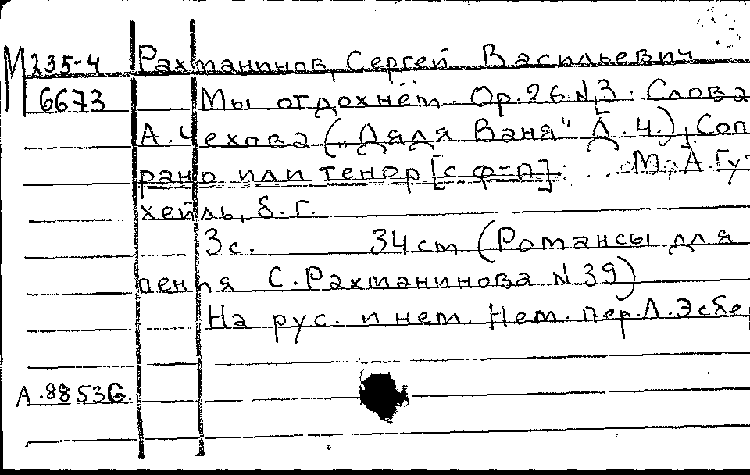 М235-4 Рахманинов, Сергей Васильевич
6673 Мы отдохнём. Op.26 N.3. Слова
А. Чехова („Дядя Ваня“ Д.4.), Соп
рано или тенор [с ф-п] ... М., А.Гу
хейль, б.г.
3с. 34cm (Романсы для
пения С. Рахманинова N 39)
На рус. и нем. Нем. пер. Л. Эсбе
А.88536